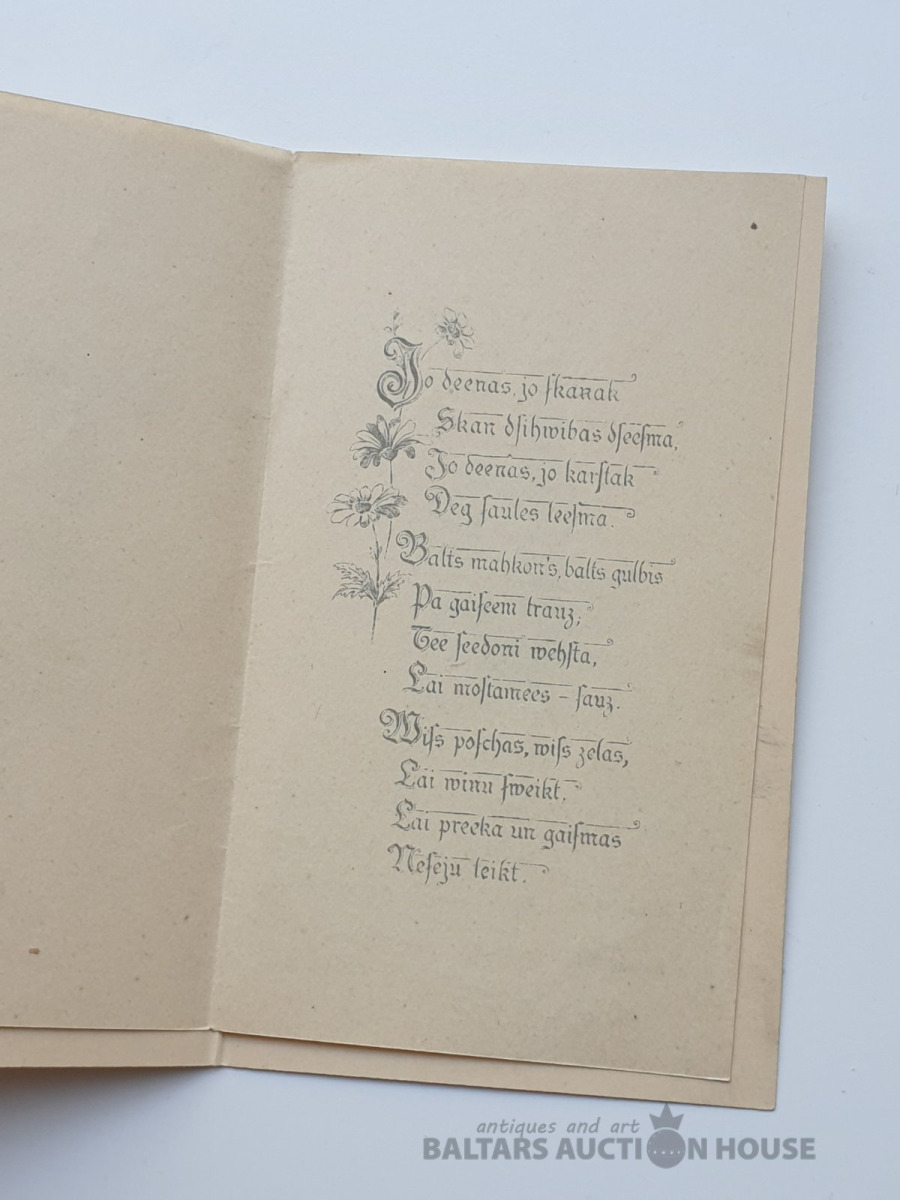 Jo deenas, jo ſkanak
Skan dſihwibas dſeeſma,
Jo deenas, jo karſtak
Deg ſaules leeſma.
Balts mahkon's, balts gulbis
Pa gaiſeem trauz;
Tee ſeedoni wehſta,
Lai moſtamees – ſauz.
Wiſs poſchas, wiſs zelas,
Lai winu ſweikt,
Lai preeka un gaiſmas
Neſeju teikt.
antiques and art
BALTARS AUCTION HOUSE